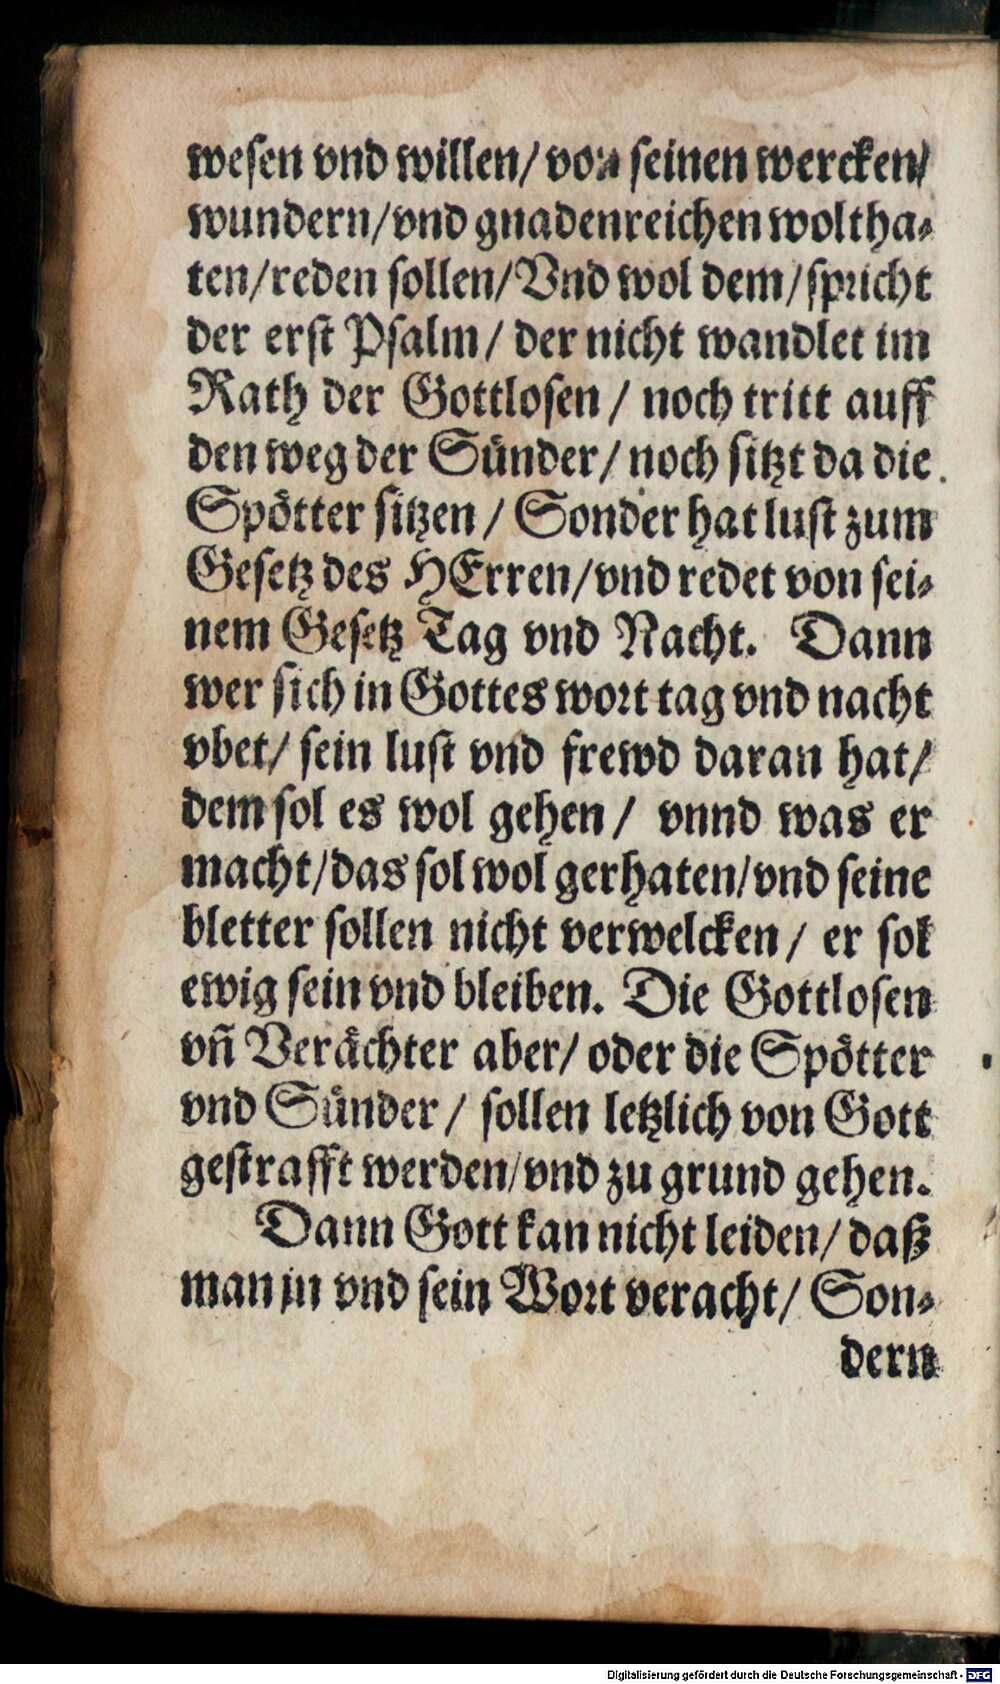 wesen vnd willen/ von seinen wercken/
wundern/vnd gnadenreichen woltha-
ten/reden sollen/Vnd wol dem/spricht
der erst Psalm/ der nicht wandlet im
Rath der Gottlosen / noch tritt auff
den weg der Sünder/ noch sitzt da die
Spötter sitzen / Sonder hat lust zum
Gesetz des HErren/vnd redet von sei-
nem Gesetz Tag vnd Nacht. Dann
wer sich in Gottes wort tag vnd nacht
vbet/ sein lust vnd frewd daran hat/
dem sol es wol gehen / vnnd was er
macht/das sol wol gerhaten/vnd seine
bletter sollen nicht verwelcken / er sol
ewig sein vnd bleiben. Die Gottlosen
vñ Verächter aber/ oder die Spötter
vnd Sünder / sollen letzlich von Gott
gestrafft werden/vnd zu grund gehen.
Dann Gott kan nicht leiden/ daß
man jn vnd sein Wort veracht/ Son-
dern
Digitalisierung gefördert durch die Deutsche Forschungsgemeinschaft - DFG